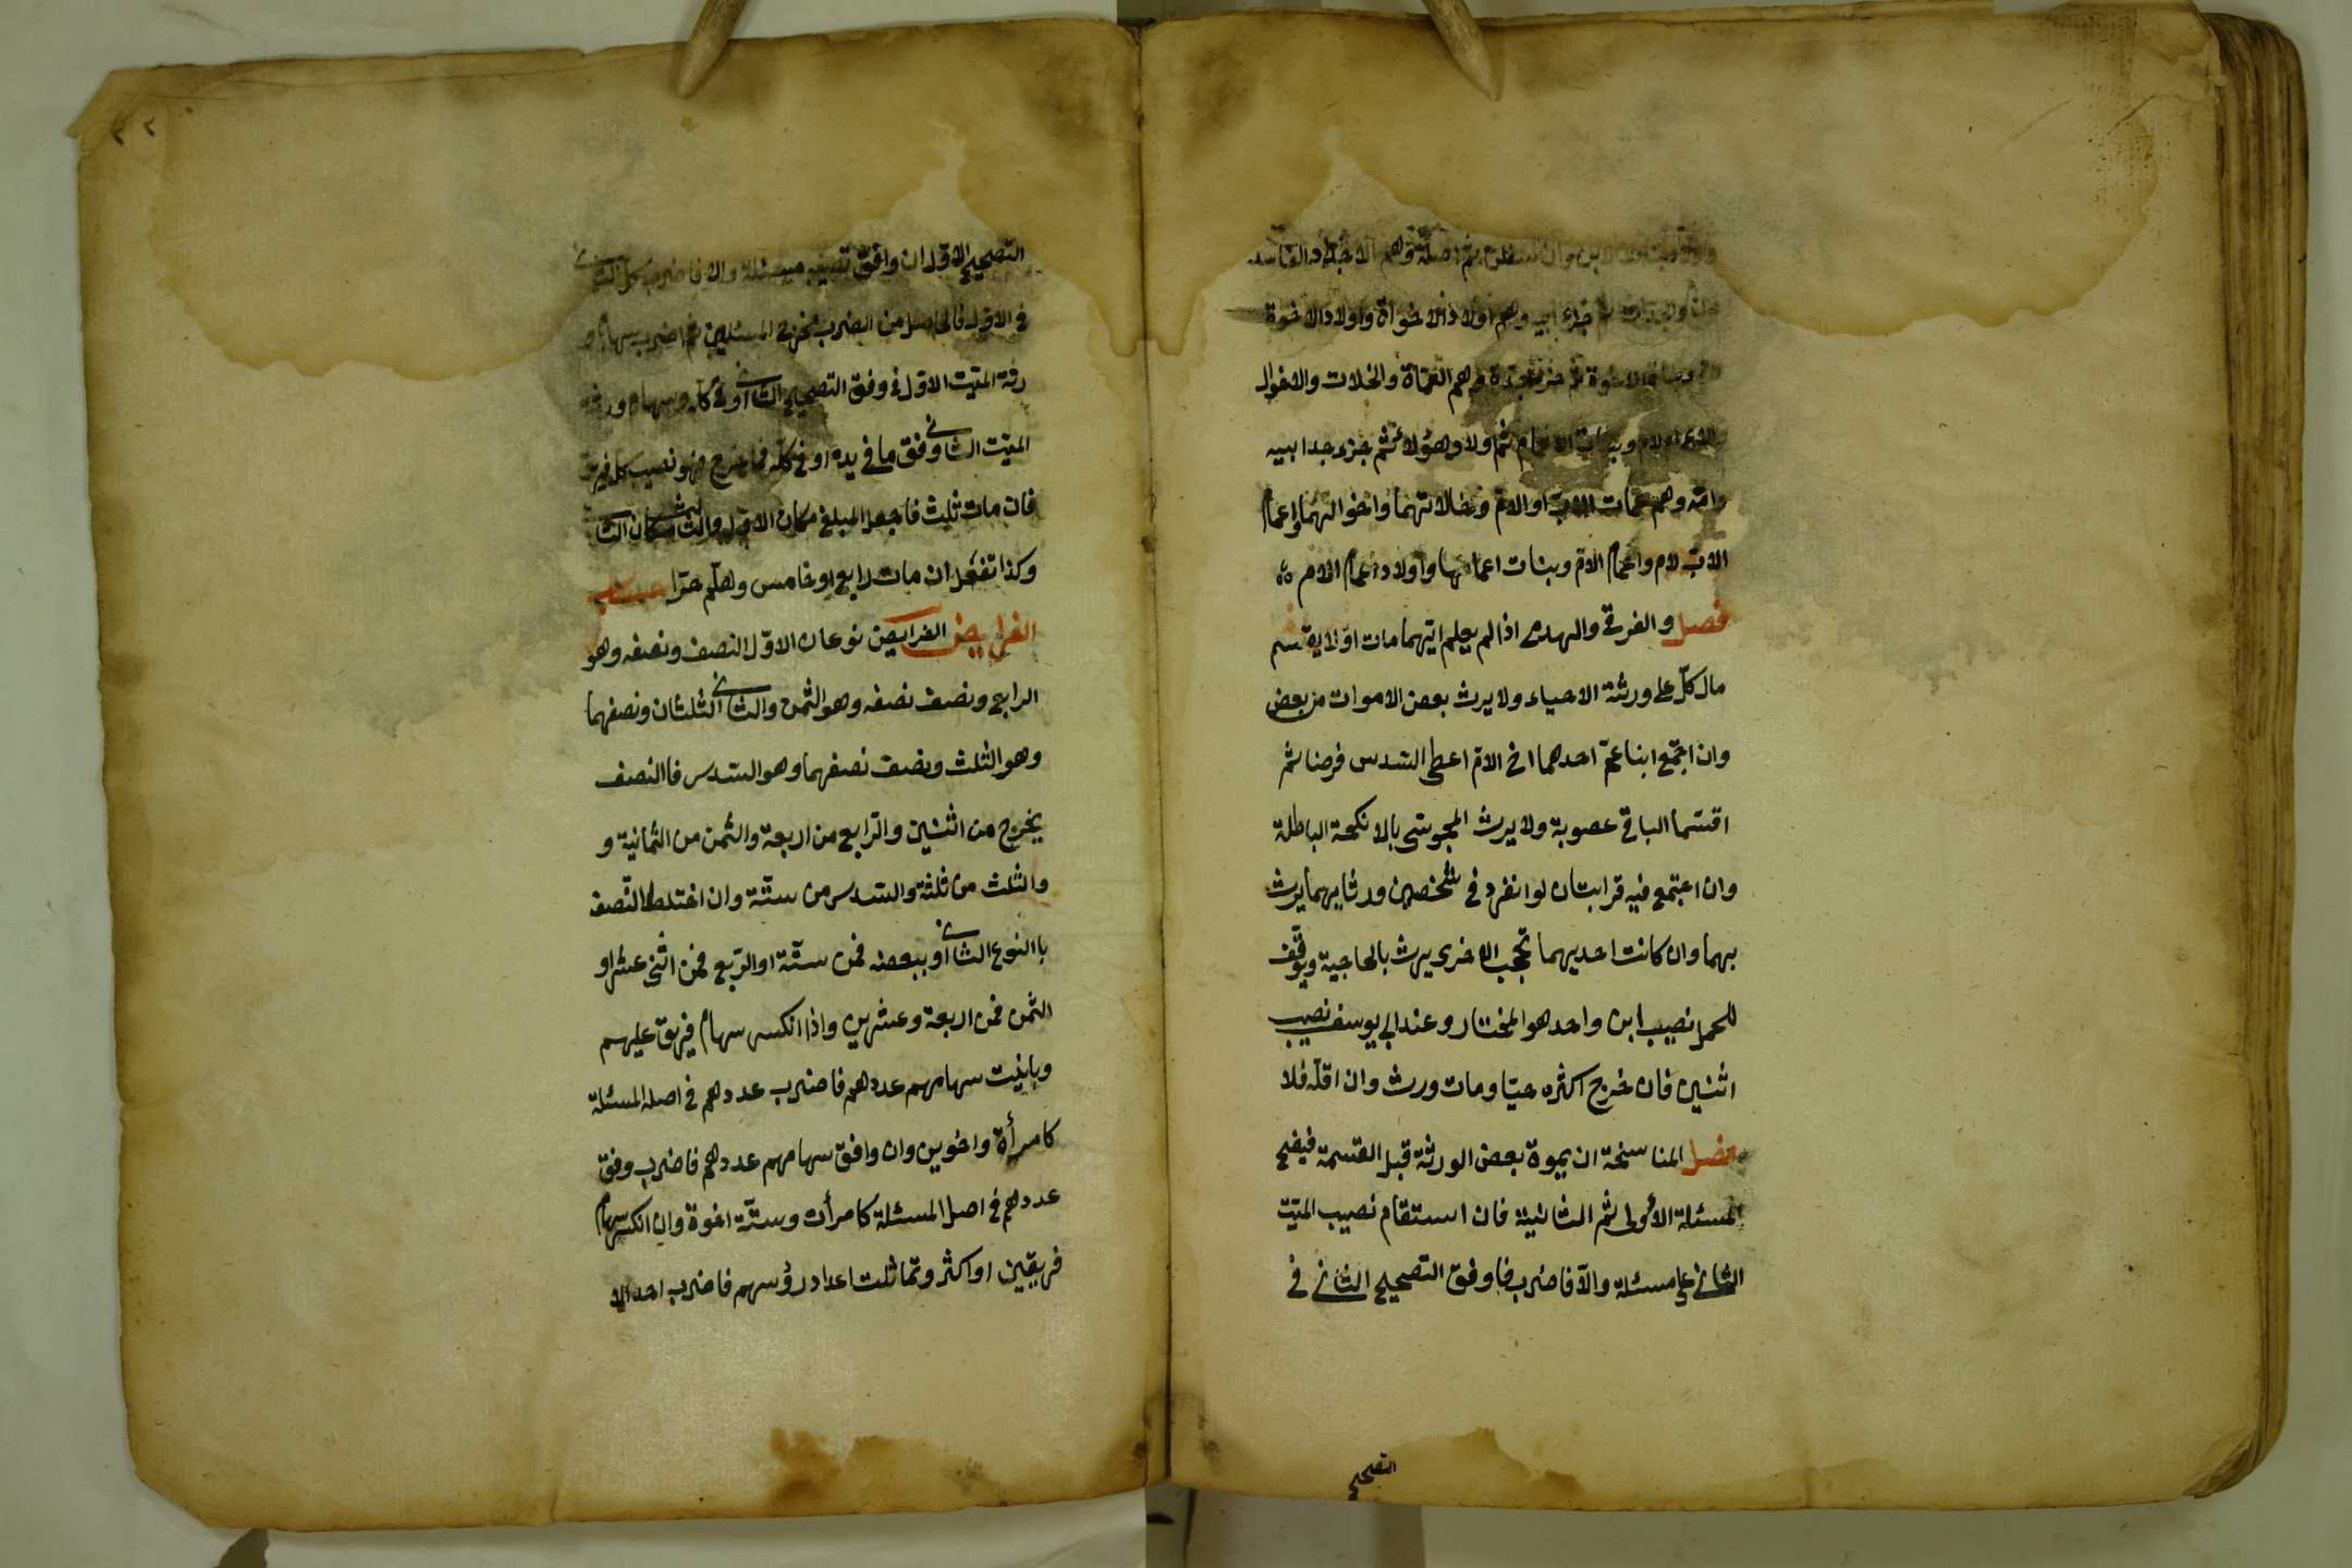 وان سفلن ثم اصله وهم الاجداد الفاسد
جزء ابيه وهم اولاد الاخواة واولاد الاخوة
جزء جده وهم العماة والخلات والاخوال
والاعمام لام وبنات الاعمام ثم ولاد هؤلاء ثم جزء جد ابيه
وامه وهم عمات الاب او الام وخلاتهما واخوالهما واعمام
الاب لام واعمام الام وبنات اعمامها واولاد اعمام الام
فصل والغرقى والهدمى اذا لم يعلم ايهما مات اولا يقسم
مال كل على ورثته الاحياء ولا يرث بعض الاموات من بعض
وان اجتمع ابنا عم احدهما اخ لام اعطى السدس فرضا ثم
اقتسما الباقي عصوبة ولا يرث المجوسى بالانكحة الباطلة
وان اجتمع فيه قرابتان لو انفرد في شخصين ورثا بهما يرث
بهما وان كانت احديهما تحجب الاخرى يرث بالحاجبة ويوقف
للحمل نصيب ابن واحد هو المختار وعند ابي يوسف نصيب
اثنين فان خرج اكثره حيا ومات ورث وان اقله فلا
فصل المناسخة ان يموة بعض الورثة قبل القسمة فيصح
المسئلة الاولى ثم الثانية فان استقام نصيب الميت
الثاني على مسئلة والا فاضرب فاوفق التصحيح الثاني في
التصحيح
٣٢
التصحيح الاول ان وافق نصيبه مسئلة والا فاضرب كل الثاني
في الاول فالحاصل من الضرب مخرج المسئلتين ثم اضرب سهام و
رثة الميت الاول في وفق التصحيح الثاني او في كله وسهام ورثة
الميت الثاني وفق ما في يده او في كله فما خرج فهو نصيب كل فريق
فان مات ثلث فاجعل المبلغ مكان الاول والثالث مكان الثاني
وكذا تفعل ان مات رابع او خامس وهلم جرا حساب
الفرايض الفرايض نوعان الاول النصف ونصفه وهو
الرابع ونصف نصفه وهو الثمن والثاني الثلثان ونصفهما
وهو الثلث ونصف نصفهما وهو السدس فاالنصف
يخرج من اثنين والرابع من اربعة والثمن من الثمانية و
والثلث من ثلثة والسدس من ستة وان اختلط النصف
باالنوع الثاني او ببعضه فمن ستة او الربع فمن اثنى عشر او
الثمن فمن اربعة وعشرين واذا انكسر سهام فريق عليهم
وباينت سهامهم عددهم فاضرب عددهم في اصل المسئلة
كامرأة واخوين وان وافق سهامهم عددهم فاضرب وفق
عددهم في اصل المسئلة كامرأت وستة اخوة وان انكسر سهام
فريقين او اكثر وتماثلت اعداد رؤسهم فاضرب احد الا